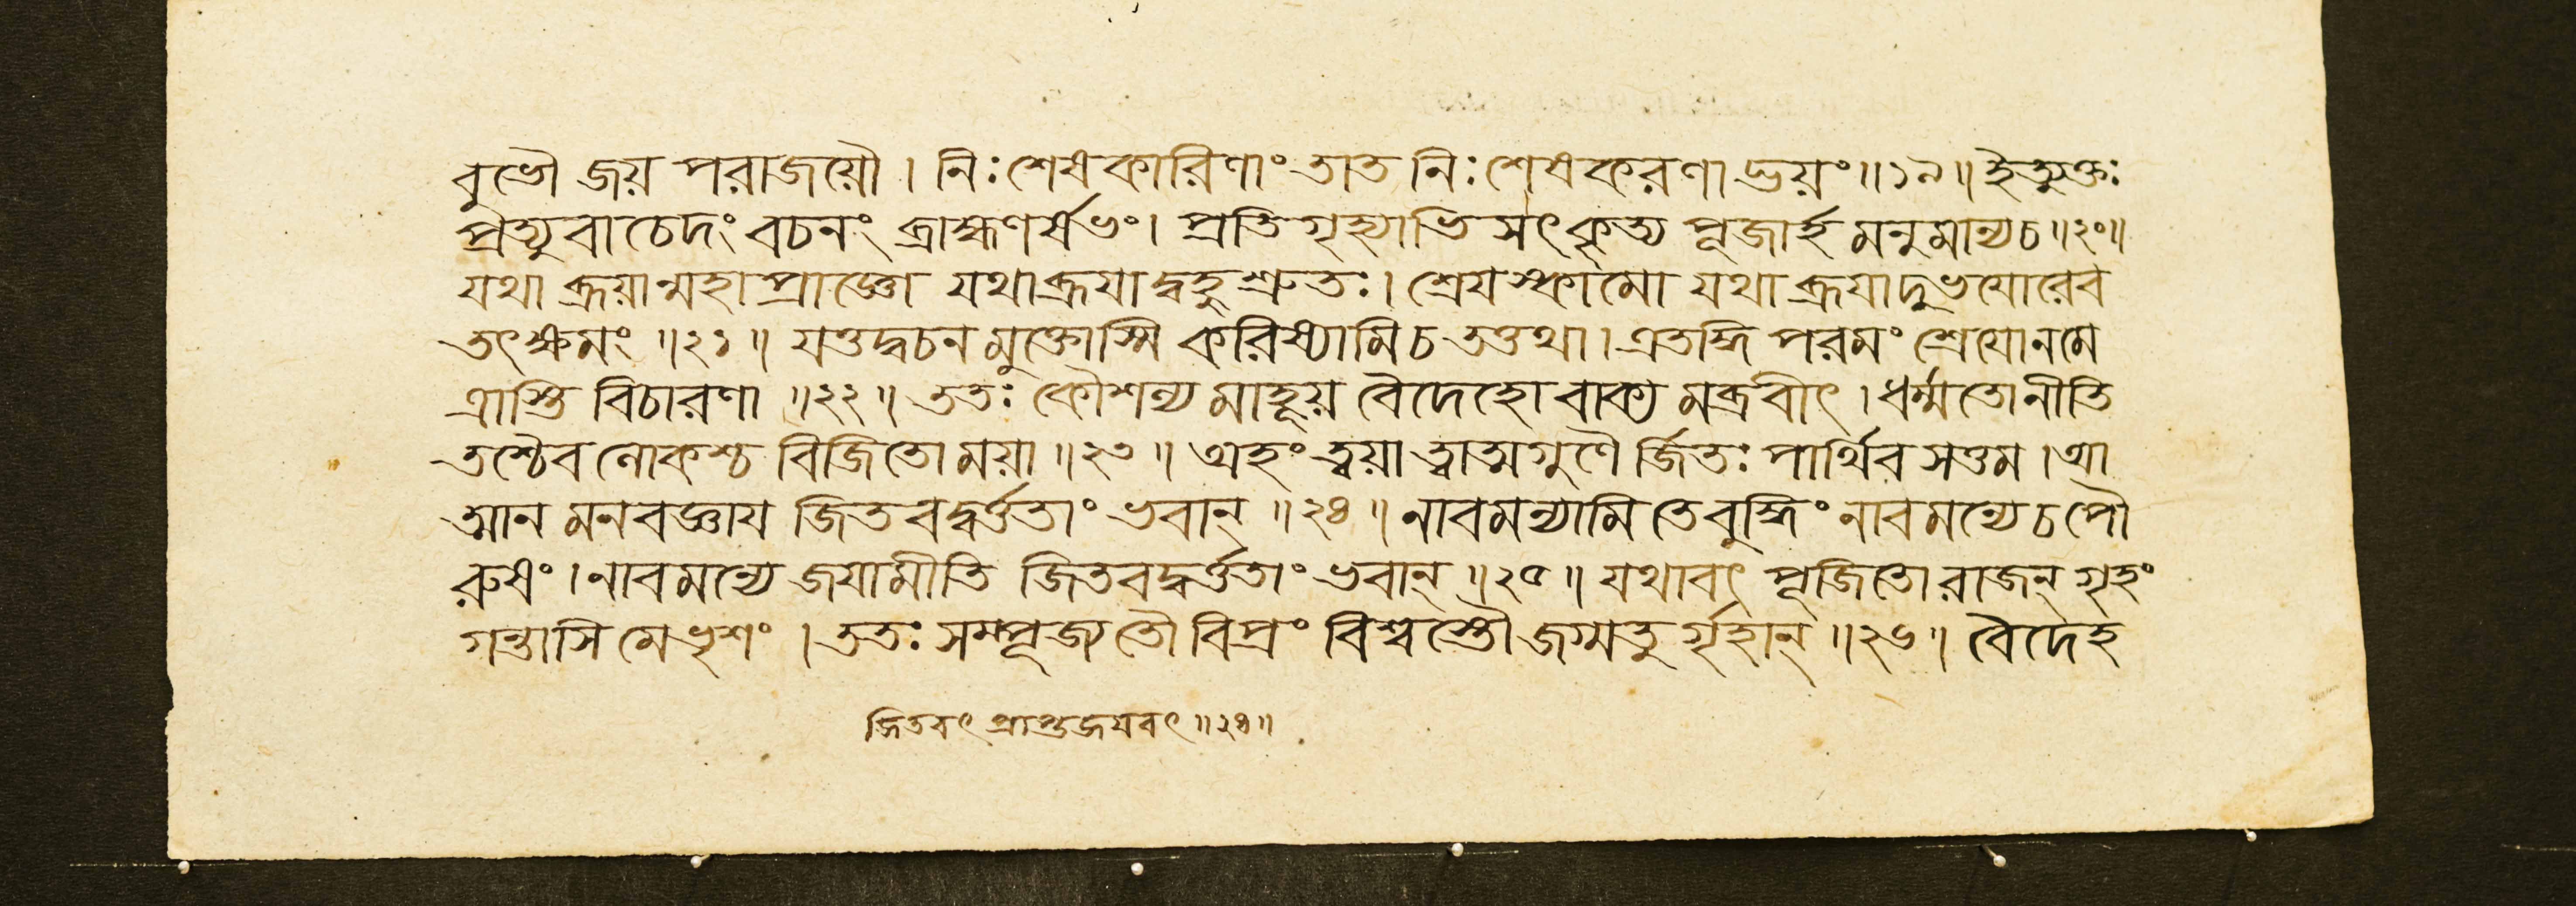 বুভৌ জয় পরাজয়ৌ । নিঃশেষকারিণাং তাত নিঃশেষকরণাদ্ভয়ং॥১৯॥ ইত্যুক্তঃ
প্রত্যুবাচেদং বচনং ব্রাহ্মণর্ষভং। প্রতিগৃহ্যাভিসৎকৃত্য পূজার্হমনুমান্যচ॥২০॥
যথা ব্রূয়ান্মহাপ্রাজ্ঞো যথাব্রূযাদ্বহুশ্রুতঃ। শ্রেযস্কামো যথা ব্রূযাদুভযোরেব
তৎক্ষমং ॥২১॥ যত্তদ্বচনমুক্তোস্মি করিষ্যামিচ তত্তথা। এতদ্ধি পরমং শ্রেযোনমে
ত্রাস্তি বিচারণা ॥২২॥ ততঃ কৌশল্যমাহূয় বৈদেহো বাক্যমব্রবীৎ । ধর্ম্মতোনীতি
তশ্চৈব লোকশ্চ বিজিতোময়া ॥২৩॥ অহং ত্বয়া ত্বাত্মগুণৈর্জিতঃ পার্থিবসত্তম । আ
ত্মানমনবজ্ঞায জিতবদ্বর্ত্ততাং ভবান্ ॥২৪॥ নাবমন্যামি তেবুদ্ধিং নাবমন্যে চ পৌ
রুষং। নাবমন্যে জযামীতি জিতবদ্বর্ত্ততাং ভবান্ ॥২৫॥ যথাবৎ পূজিতো রাজন্ গৃহং
গন্তাসি মেভৃশং । ততঃ সম্পূজ্য তৌ বিপ্রং বিশ্বস্তৌ জগ্মতুর্গৃহান্ ॥২৬॥ বৈদেহ
জিতবৎ প্রাপ্তজয়বৎ॥২৪॥